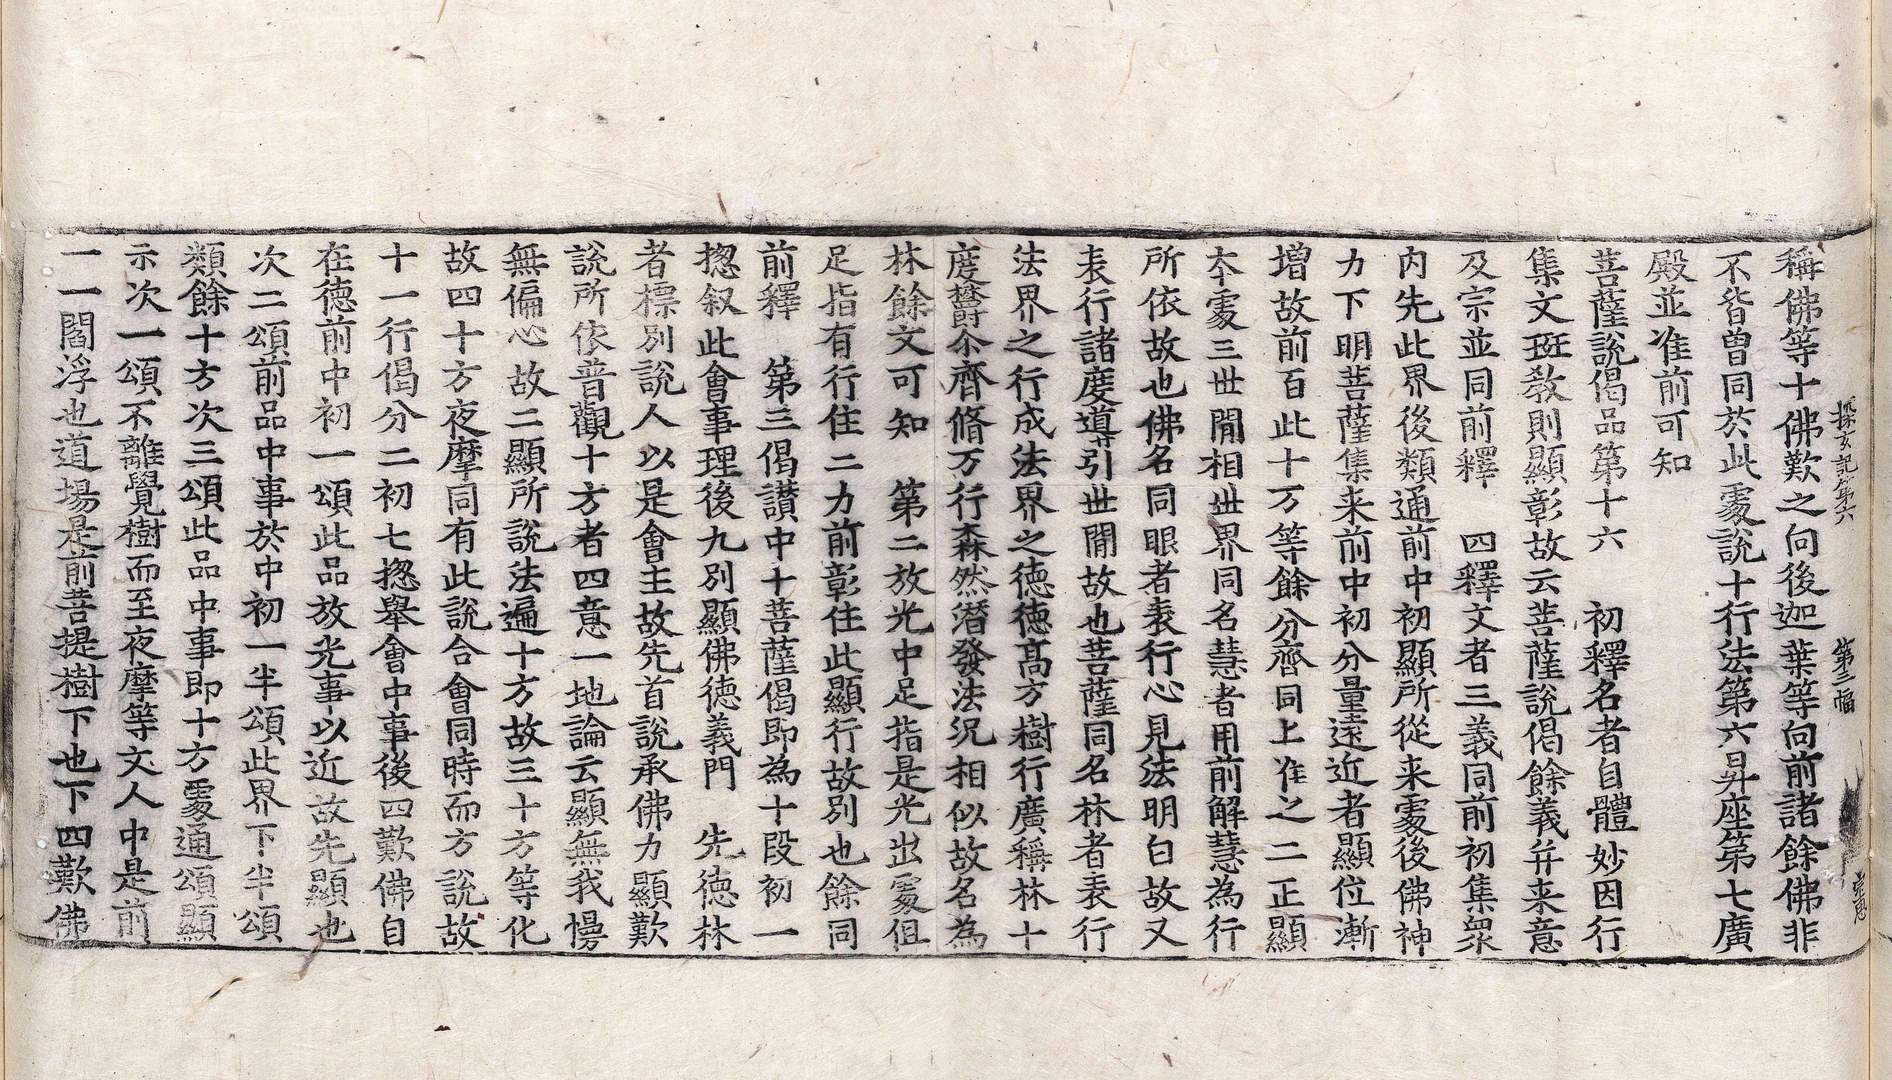 探玄記第六　第二幅　宗惠
稱佛等十佛歎之向後迦葉等向前諸餘佛非
不皆曽同於此處說十行法第六昇座第七廣
殿並准前可知
菩薩說偈品第十六　初釋名者自體妙因行
集文班教則顯彰故云菩薩說偈餘義并来意
及宗並同前釋　四釋文者三義同前初集衆
内先此界後類通前中初顯所從来處後佛神
力下明菩薩集来前中初分量遠近者顯位漸
增故前百此十万等餘分齊同上准之二正顯
本處三世閒相世界同名慧者用前解慧為行
所依故也佛名同眼者表行心見法明白故又
表行諸度道引世閒故也菩薩同名林者表行
法界之行成法界之德德髙方樹行廣稱林十
度欝尒齊脩万行森然潜發法況相似故名為
林餘文可知　第二放光中足指是光出處但
足指有行住二力前彰住此顯行故别也餘同
前釋　第三偈讃中十菩薩偈即為十段初一
揔叙此會事理後九別顯佛德義門　先德林
者標别說人以是會主故先首說承佛力顯歎
說所依普觀十方者四意一地論云顯無我慢
無偏心故二顯所說法遍十方故三十方等化
故四十方夜摩同有此說合會同時而方說故
十一行偈分二初七揔舉會中事後四歎佛自
在德前中初一頌此品放光事以近故先顯也
次二頌前品中事於中初一半頌此界下半頌
類餘十方次三頌此品中事即十方處通頌顯
示次一頌不離覺樹而至夜摩等文人中是前
一一閻浮也道場是前菩提樹下也下四歎佛